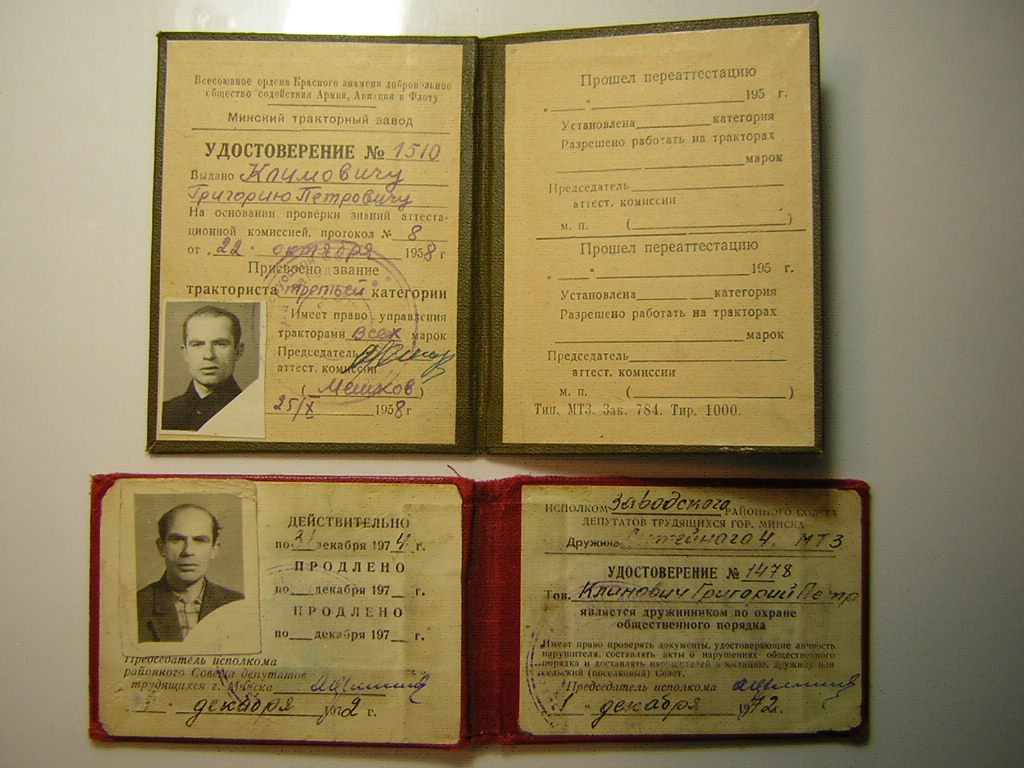 Всесоюзное ордена Красного знамени добровольное
общество содействия Армии, Авиации и Флоту
Минский тракторный завод
УДОСТОВЕРЕНИЕ № 1510
Выдано Климовичу
Григорию Петровичу
На основании проверки знаний аттеста-
ционной комиссией, протокол № 8
от „22" октября 1958 г
Присвоено звание
тракториста третьей категории
Имеет право управления
тракторами всех марок
Председатель
аттест. комиссии
(Мешков)
25/X 1958 г
Прошел переаттестацию
„ " 195 г.
Установлена категория
Разрешено работать на тракторах
марок
Председатель
аттест. комиссии
м. п. ( )
Прошел переаттестацию
„ " 195 г.
Установлена категория
Разрешено работать на тракторах
марок
Председатель
аттест. комиссии
м. п. ( )
Тип. МТЗ. Зак. 784. Тир. 1000.
ДЕЙСТВИТЕЛЬНО
по 31 декабря 1974 г.
ПРОДЛЕНО
по декабря 197 г.
ПРОДЛЕНО
по декабря 197 г.
Председатель исполкома
районного Совета депутатов
трудящихся г. Минска
1 декабря 1972 г.
ИСПОЛКОМ Заводского РАЙОННОГО СОВЕТА
ДЕПУТАТОВ ТРУДЯЩИХСЯ ГОР. МИНСКА
Дружина Литейного Ч. МТЗ
УДОСТОВЕРЕНИЕ № 1478
Тов. Климович Григорий Петр
является дружинником по охране
общественного порядка
Имеет право проверять документы, удостоверяющие личность
нарушителя, составлять акты о нарушениях общественного
порядка и доставлять нарушителей в милицию, дружину или
сельский (поселковый) Совет.
Председатель исполкома
„1" декабря 1972.